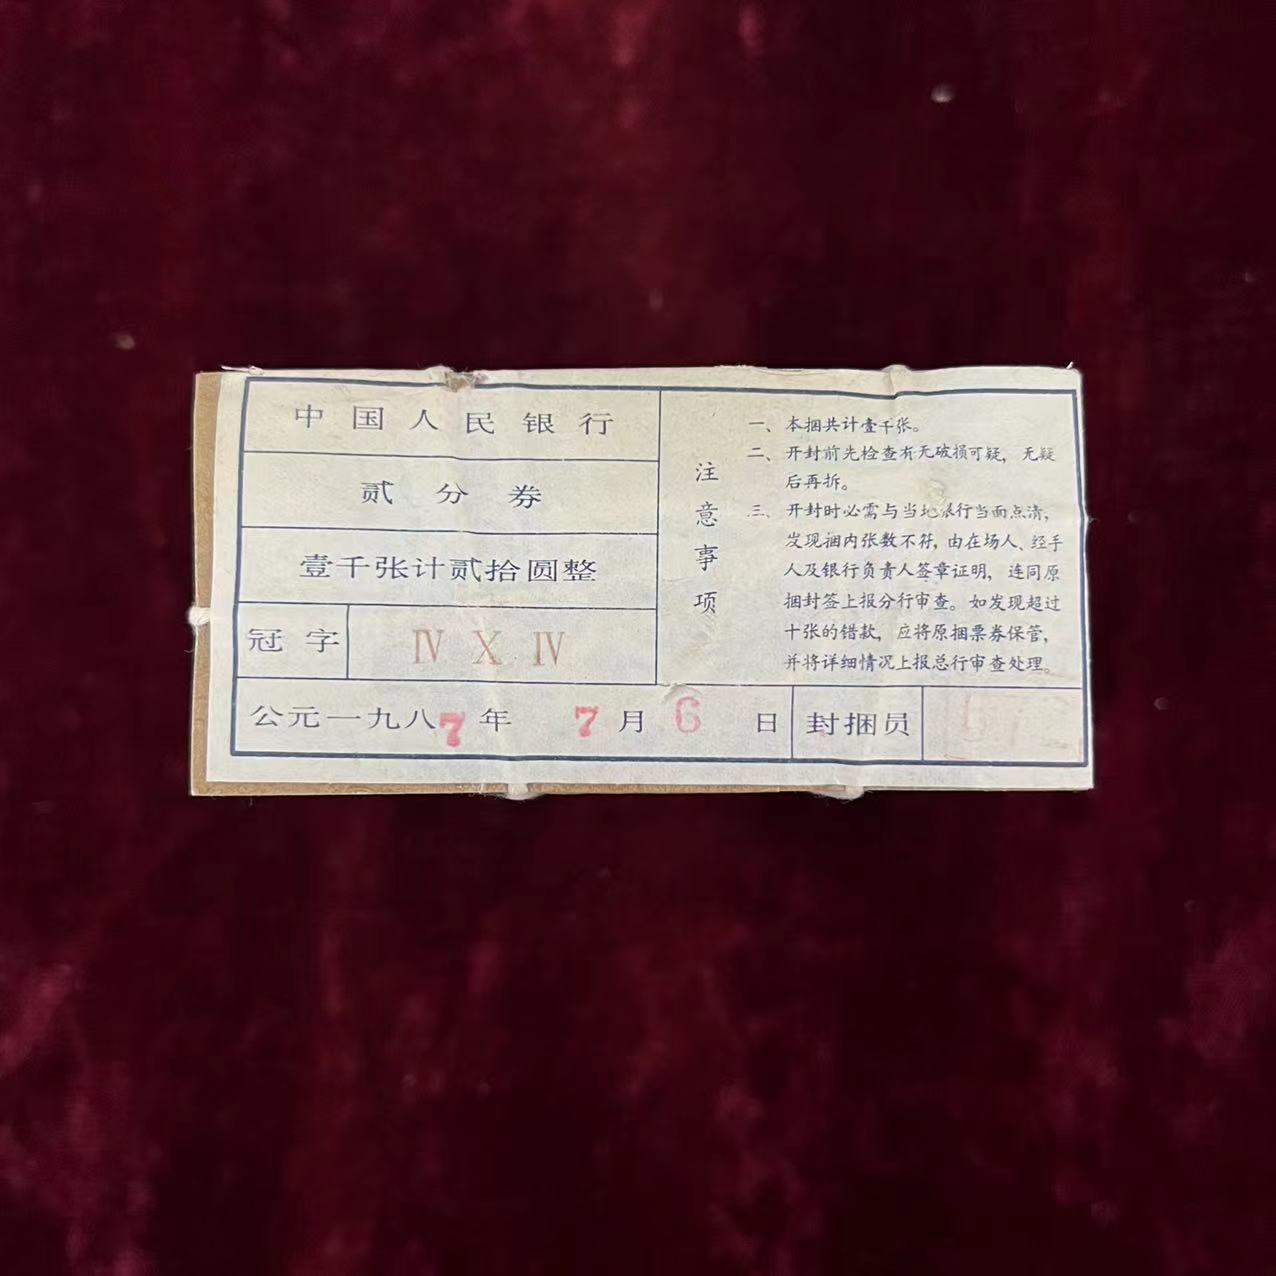 中国人民银行
贰分券
壹千张计贰拾圆整
冠字
Ⅳ Ⅹ Ⅳ
公元一九八7年 7月6日
封捆员
注意事项
一、本捆共计壹千张。
二、开封前先检查有无破损可疑，无疑
后再拆。
三、开封时必需与当地银行当面点清，
发现捆内张数不符，由在场人、经手
人及银行负责人签章证明，连同原
捆封签上报分行审查。如发现超过
十张的错款，应将原捆票券保管，
并将详细情况上报总行审查处理。